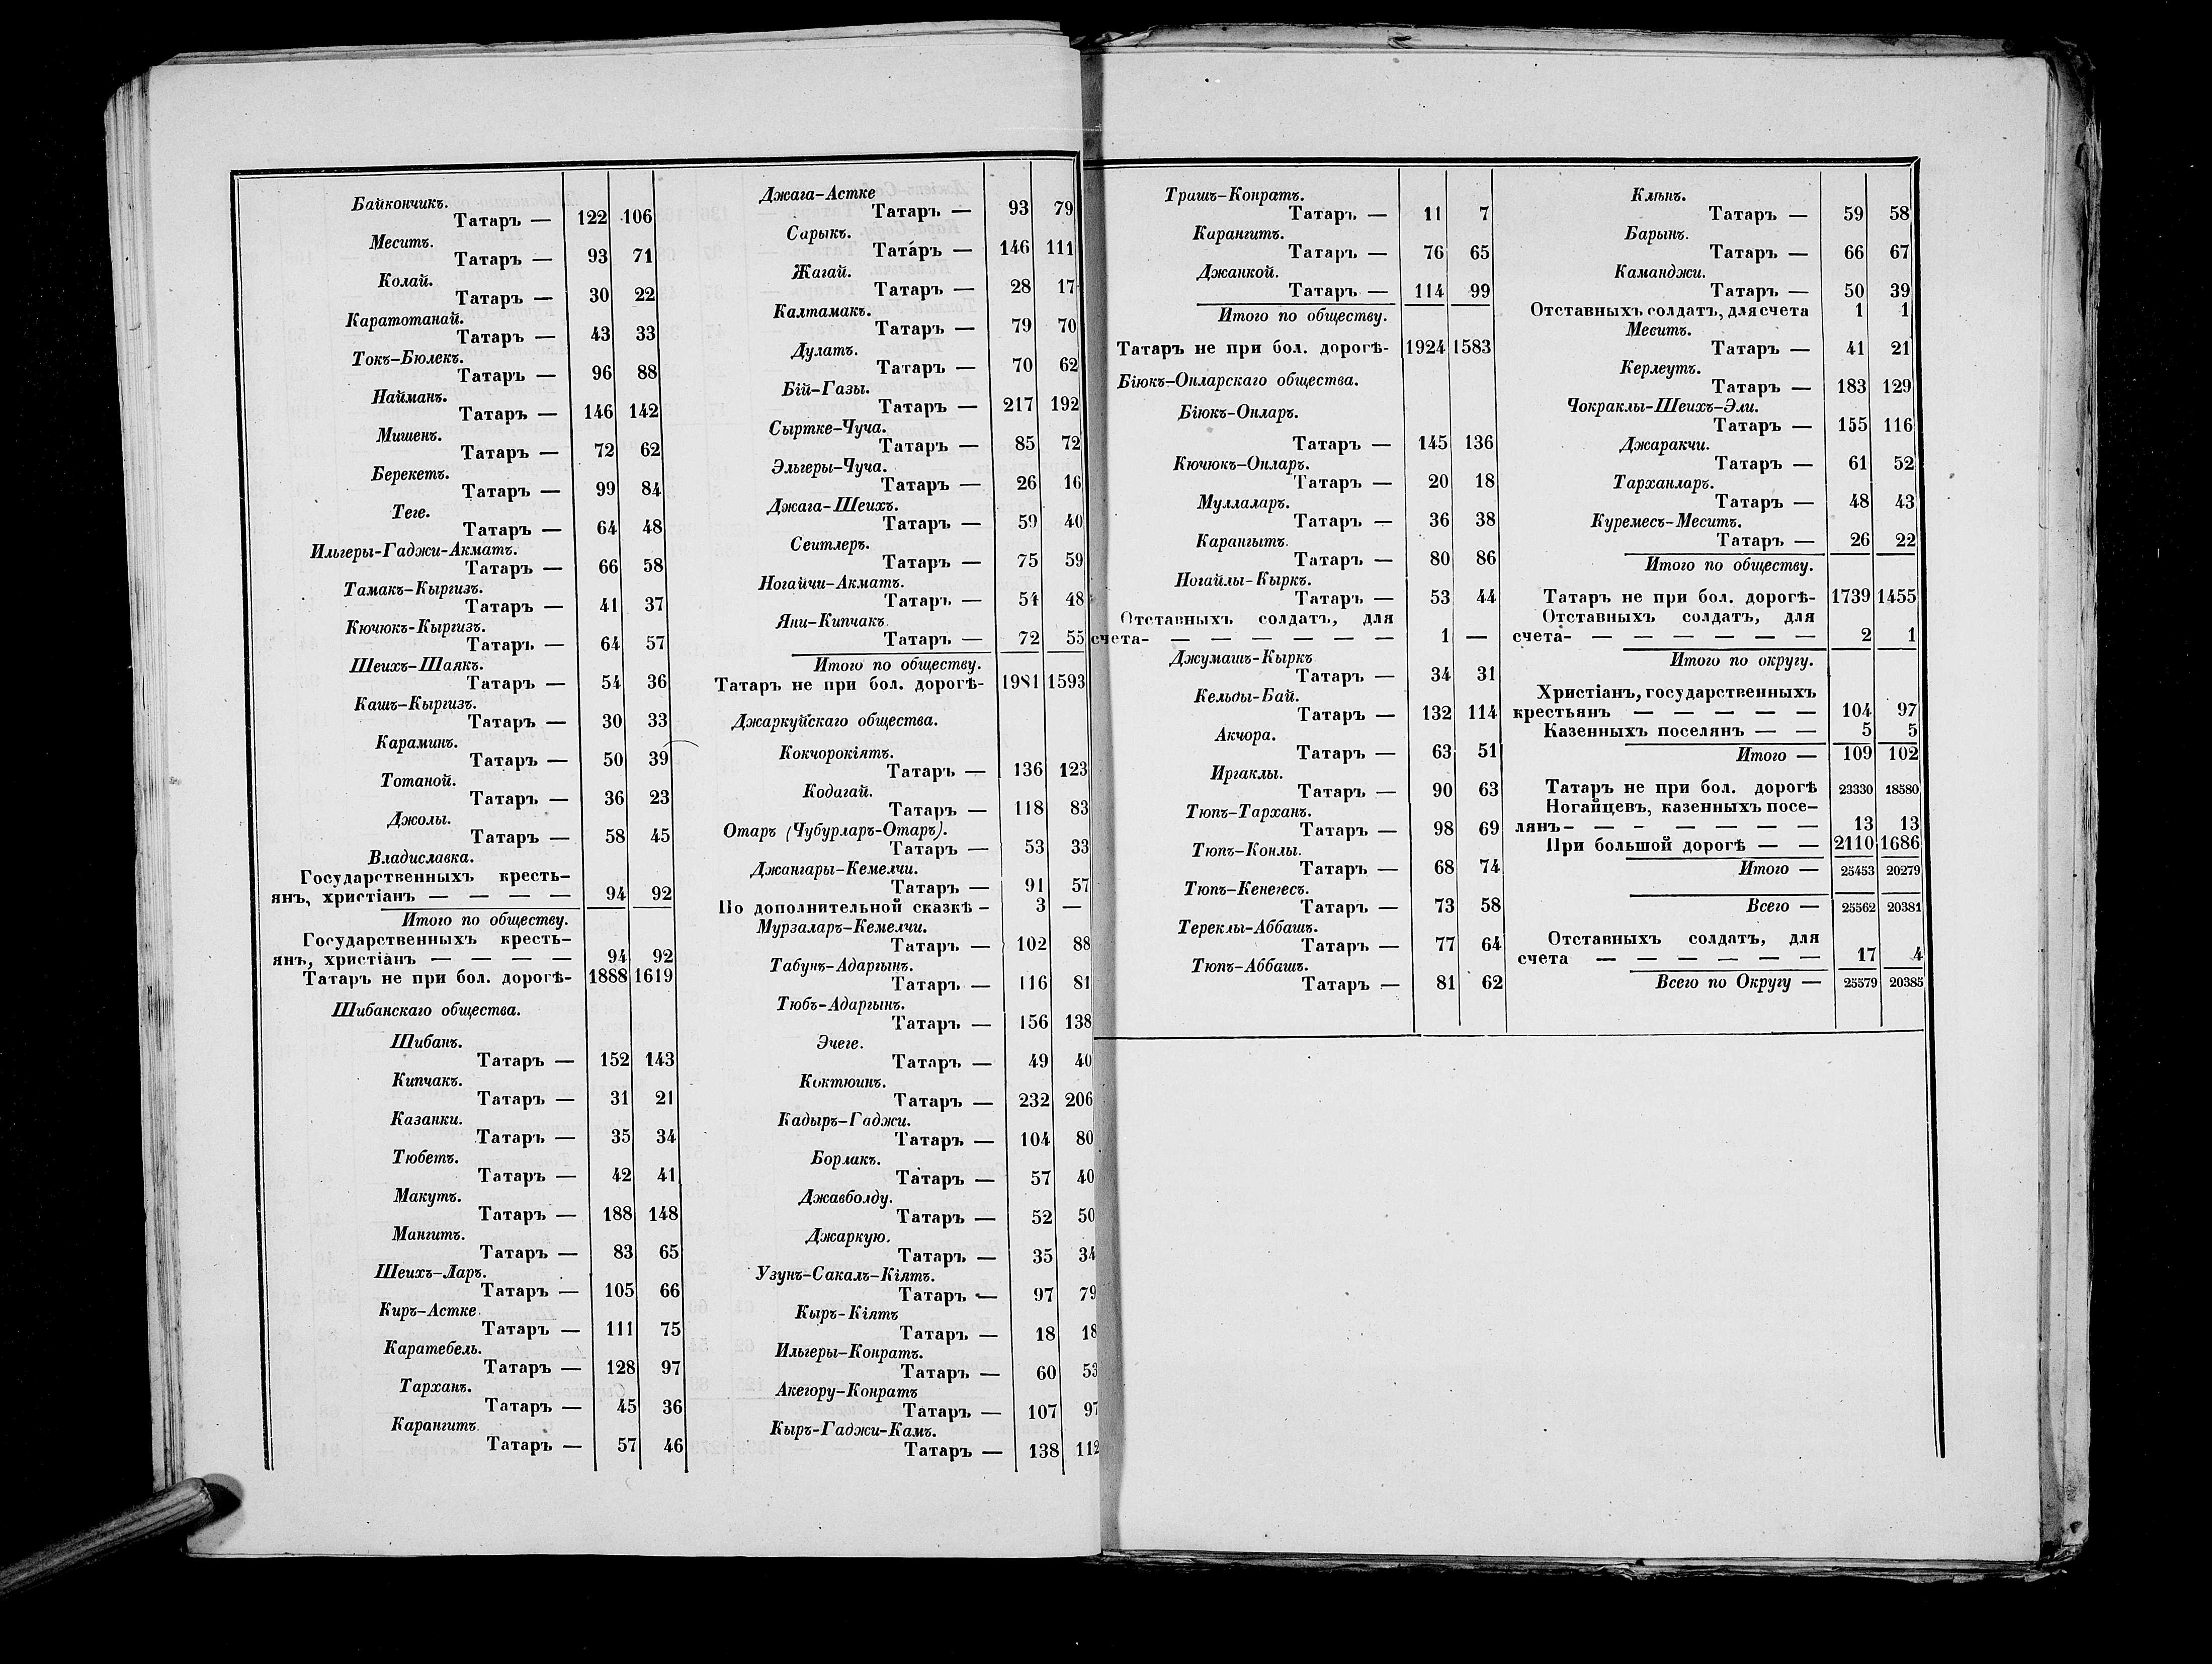 Байкончикъ.
Татаръ — 122 106
Меситъ.
Татаръ — 93 71
Колай.
Татаръ — 30 22
Каратотанай.
Татаръ — 43 33
Токъ-Бюлекъ.
Татаръ — 96 88
Найманъ.
Татаръ — 146 142
Мишенъ.
Татаръ — 72 62
Берекетъ.
Татаръ — 99 84
Теге.
Татаръ — 64 48
Ильгеры-Гаджи-Акматъ.
Татаръ — 66 58
Тамакъ-Кыргизъ.
Татаръ — 41 37
Кючюкъ-Кыргизъ.
Татаръ — 64 57
Шеихъ-Шаякъ.
Татаръ — 54 36
Кашъ-Кыргизъ.
Татаръ — 30 33
Караминъ.
Татаръ — 50 39
Тотаной.
Татаръ — 36 23
Джолы.
Татаръ — 58 45
Владиславка.
Государственныхъ кресть-
янъ, христіанъ — — — — 94 92
Итого по обществу.
Государственныхъ кресть-
янъ, христіанъ — — — — 94 92
Татаръ не при бол. дорогѣ- 1888 1619
Шибанскаго общества.
Шибанъ.
Татаръ — 152 143
Кипчакъ.
Татаръ — 31 21
Казанки.
Татаръ — 35 34
Тюбетъ.
Татаръ — 42 41
Макутъ.
Татаръ — 188 148
Мангитъ.
Татаръ — 83 65
Шеихъ-Ларъ.
Татаръ — 105 66
Киръ-Астке.
Татаръ — 111 75
Каратебель.
Татаръ — 128 97
Тарханъ.
Татаръ — 45 36
Карангитъ.
Татаръ — 57 46
Джага-Астке
Татаръ — 93 79
Сарыкъ.
Татаръ — 146 111
Жагай.
Татаръ — 28 17
Калтамакъ.
Татаръ — 79 70
Дулатъ.
Татаръ — 70 62
Бій-Газы.
Татаръ — 217 192
Сыртке-Чуча.
Татаръ — 85 72
Эльгеры-Чуча.
Татаръ — 26 16
Джага-Шеихъ.
Татаръ — 59 40
Сеитлеръ.
Татаръ — 75 59
Ногайчи-Акматъ.
Татаръ — 54 48
Яни-Кипчакъ.
Татаръ — 72 55
Итого по обществу.
Татаръ не при бол. дорогѣ- 1981 1593
Джаркуйскаго общества.
Кокчорокіятъ.
Татаръ — 136 123
Кодагай.
Татаръ — 118 83
Отаръ (Чубурларъ-Отаръ).
Татаръ — 53 33
Джангары-Кемелчи.
Татаръ — 91 57
По дополнительной сказкѣ - 3 —
Мурзаларъ-Кемелчи.
Татаръ — 102 88
Табунъ-Адаргынъ.
Татаръ — 116 81
Тюбъ-Адаргынъ.
Татаръ — 156 138
Эчеге.
Татаръ — 49 40
Коктюинъ.
Татаръ — 232 206
Кадыръ-Гаджи.
Татаръ — 104 80
Борлакъ.
Татаръ — 57 40
Джавболду.
Татаръ — 52 50
Джаркую.
Татаръ — 35 34
Узунъ-Сакалъ-Кіятъ.
Татаръ — 97 79
Кыръ-Кіятъ
Татаръ — 18 18
Ильгеры-Конратъ.
Татаръ — 60 53
Акегору-Конратъ
Татаръ — 107 97
Кыръ-Гаджи-Камъ.
Татаръ — 138 112
Трашъ-Конратъ.
Татаръ — 11 7
Карангитъ.
Татаръ — 76 65
Джанкой.
Татаръ — 114 99
Итого по обществу.
Татаръ не при бол. дорогѣ- 1924 1583
Біюкъ-Онларскаго общества.
Біюкъ-Онларъ.
Татаръ — 145 136
Кючюкъ-Онларъ.
Татаръ — 20 18
Муллаларъ.
Татаръ — 36 38
Карангытъ.
Татаръ — 80 86
Ногайлы-Кыркъ.
Татаръ — 53 44
Отставныхъ солдатъ, для
счета- — — — — — — 1 —
Джумашъ-Кыркъ
Татаръ — 34 31
Кельды-Бай.
Татаръ — 132 114
Акчора.
Татаръ — 63 51
Иргаклы.
Татаръ — 90 63
Тюпъ-Тарханъ.
Татаръ — 98 69
Тюпъ-Конлы.
Татаръ — 68 74
Тюпъ-Кенегесъ.
Татаръ — 73 58
Тереклы-Аббашъ.
Татаръ — 77 64
Тюпъ-Аббашъ.
Татаръ — 81 62
Клѣнъ.
Татаръ — 59 58
Барынъ.
Татаръ — 66 67
Каманджи.
Татаръ — 50 39
Отставныхъ солдатъ, для счета 1 1
Меситъ.
Татаръ — 41 21
Керлеутъ.
Татаръ — 183 129
Чокраклы-Шеихъ-Эли.
Татаръ — 155 116
Джаракчи.
Татаръ — 61 52
Тарханларъ.
Татаръ — 48 43
Куремесъ-Меситъ.
Татаръ — 26 22
Итого по обществу.
Татаръ не при бол. дорогѣ- 1739 1455
Отставныхъ солдатъ, для
счета- — — — — — — 2 1
Итого по округу.
Христіанъ, государственныхъ
крестьянъ — — — — — 104 97
Казенныхъ поселянъ — — 5 5
Итого — 109 102
Татаръ не при бол. дорогѣ 23330 18580
Ногайцевъ, казенныхъ посе-
лянъ- — — - — — — — 13 13
При большой дорогѣ — — 2110 1686
Итого — 25453 20279
Всего — 25562 20381
Отставныхъ солдатъ, для
счета — — — — — — 17 4
Всего по Округу — 25579 20385